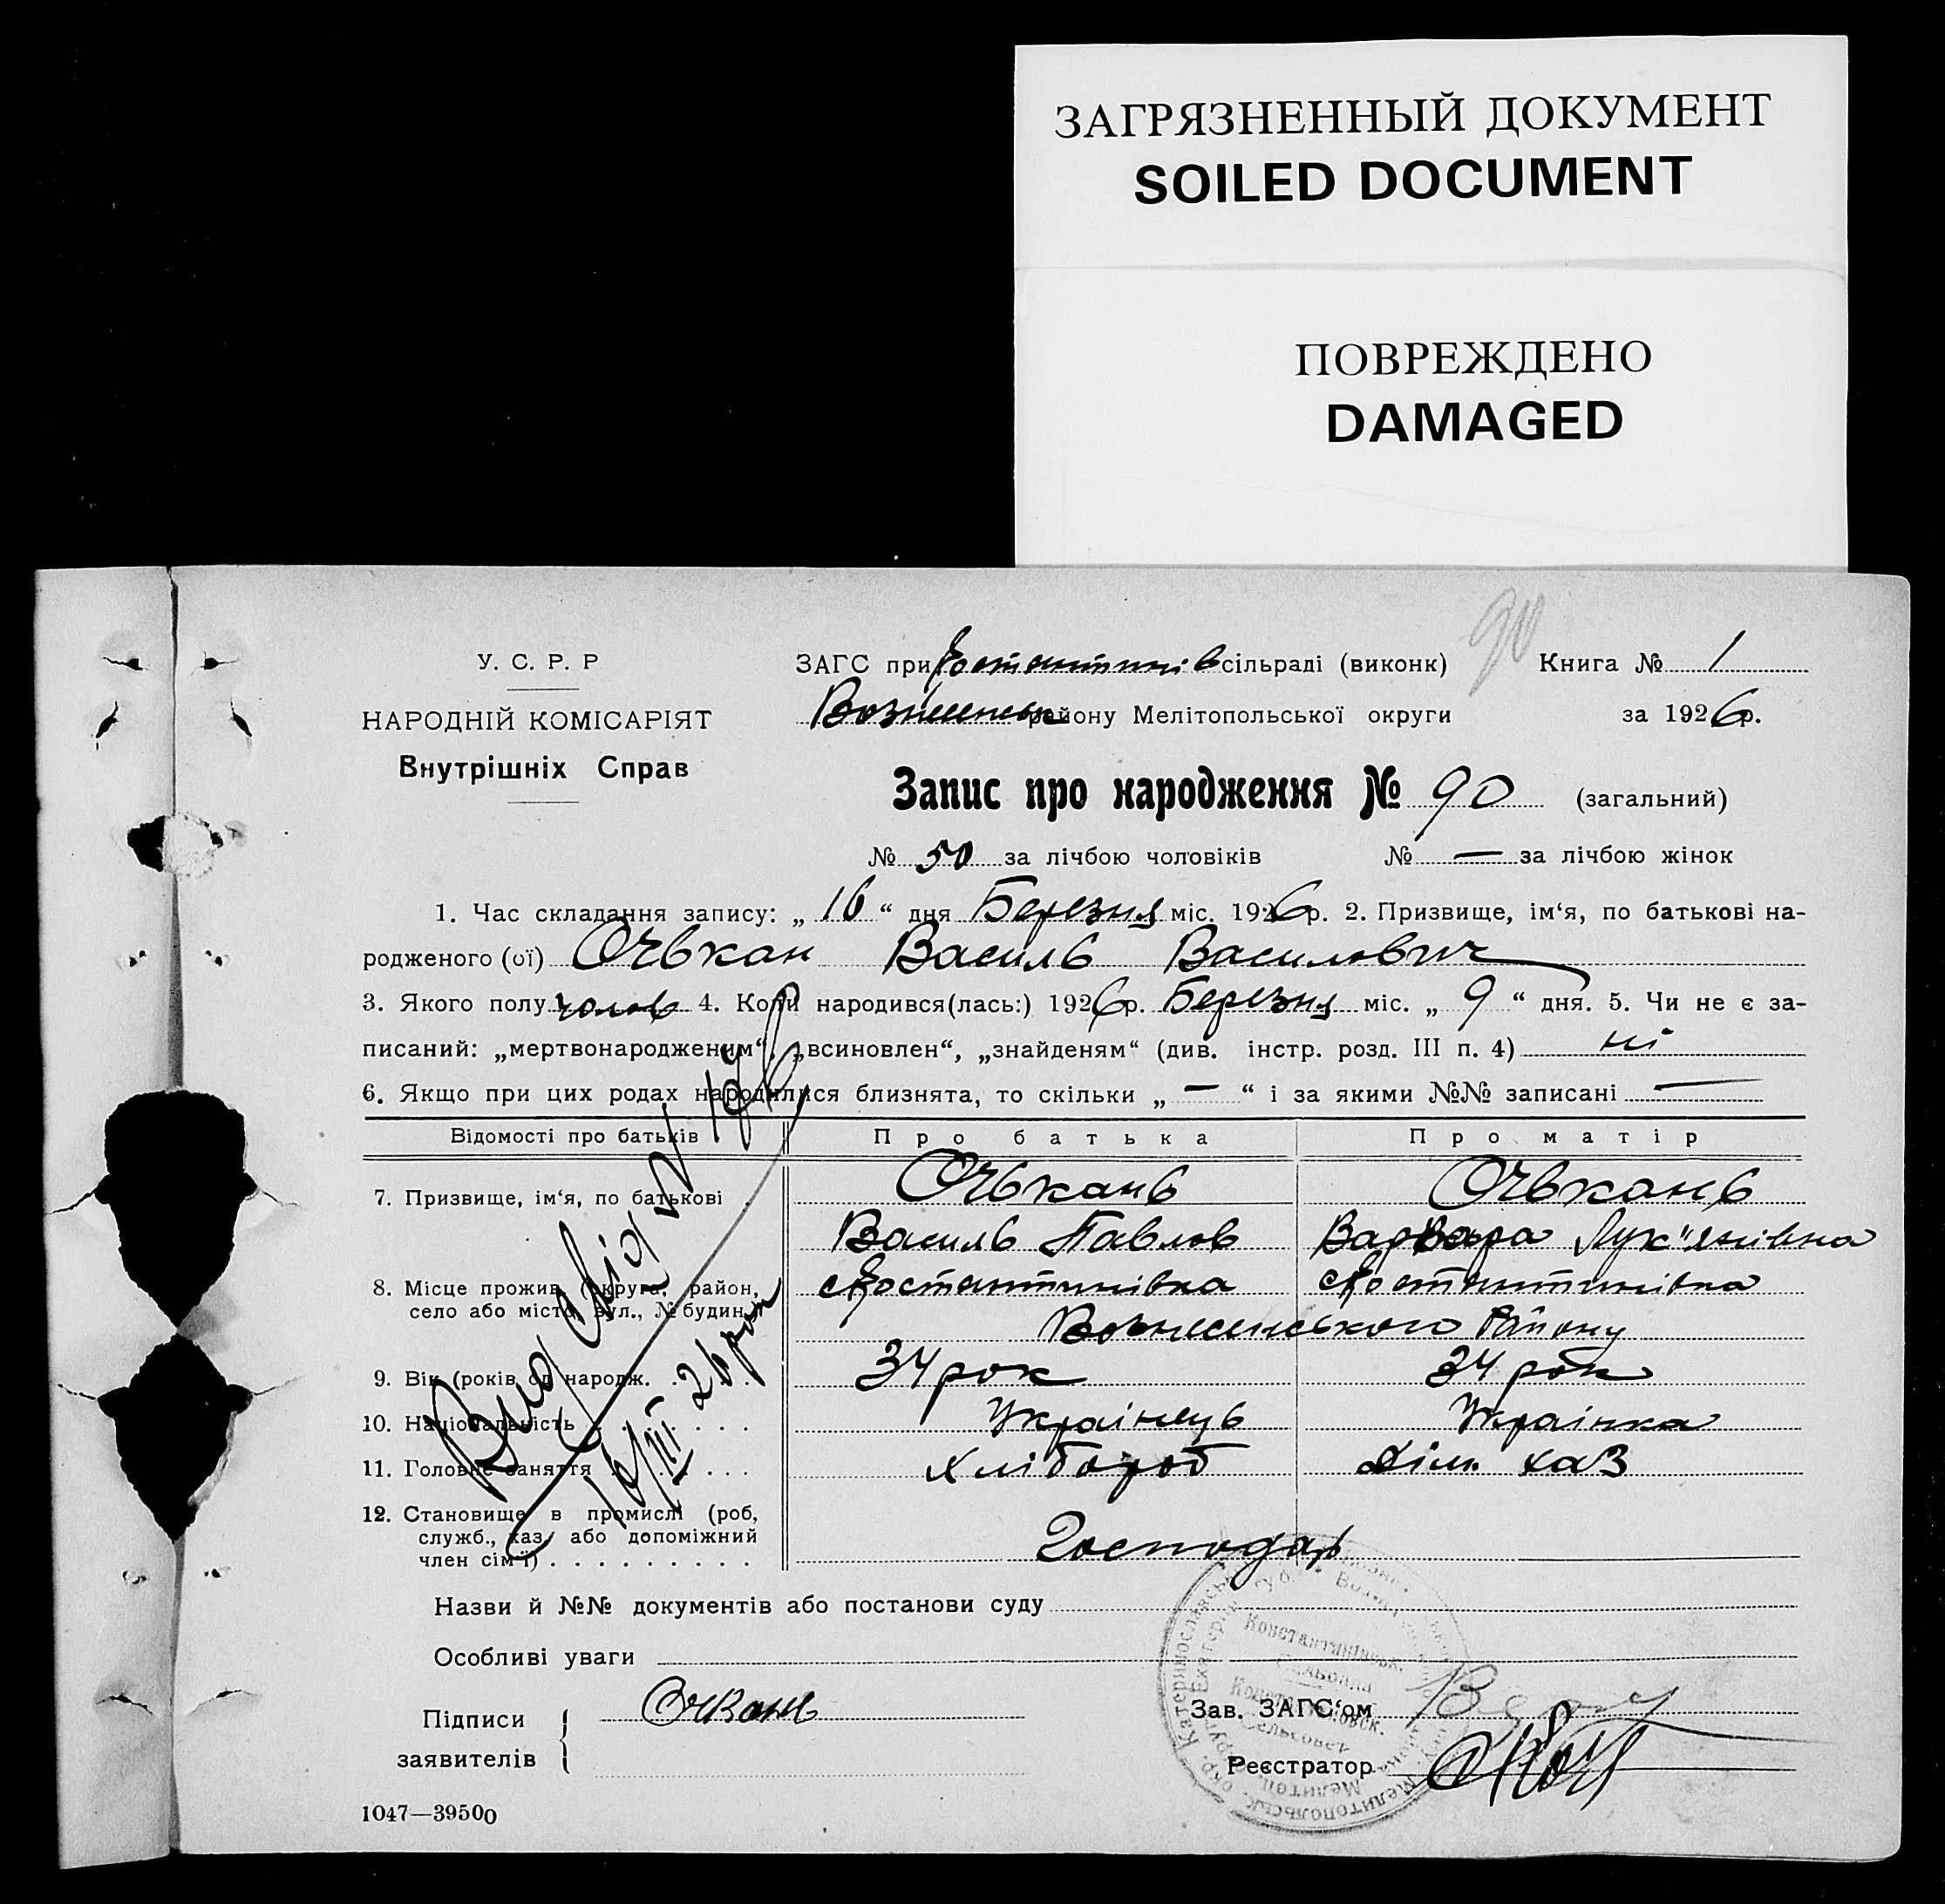 ЗАГРЯЗНЕННЫЙ ДОКУМЕНТ
SOILED DOCUMENT
ПОВРЕЖДЕНО
DAMAGED
90
У. С. Р. Р
НАРОДНІЙ КОМІСАРІЯТ
Внутрішніх Справ
ЗАГС при Костантинів сільраді (виконк) Книга № 1
Вознесенськ району Мелітопольської округи за 1926 р.
Запис про народження № 90 (загальний)
№ 50 за лічбою чоловіків № — за лічбою жінок
1. Час складання запису: „ 16 “ дня Березня міс. 1926 р. 2. Призвище, ім‘я, по батькові на-
родженого (ої) Очькан Василь Васильович
3. Якого полу чолов 4. Коли народився(лась:) 1926 р. Березня міс. „ 9 “ дня. 5. Чи не є за-
писаний: „мертвонародженим“, „всиновлен“, „знайденям“ (див. інстр. розд. III п. 4) ні
6. Якщо при цих родах народилися близнята, то скільки „ — “ і за якими №№ записані —
Відомості про батьків Про батька Про матір
7. Призвище, ім‘я, по батькові Очькань Очькань
Василь Павлов Варвара Лук"янівна
8. Місце прожив. (округа, район, Костантинівка Костантинівка
село або місто, вул., № будин.) Вознесенського Району
9. Вік (років од народж. 34 рок 34 рок
10. Національність Українець Українка
11. Головне заняття Хлібороб Дім. хаз
12. Становище в промислі (роб,
служб., хаз, або допоміжний
член сім‘ї) Господар
16/III 26 рок
Назви й №№ документів або постанови суду
Особливі уваги
Підписи Очкань
заявителів
Зав. ЗАГС‘ом
Реєстратор
Константинівськ.
1047—39500